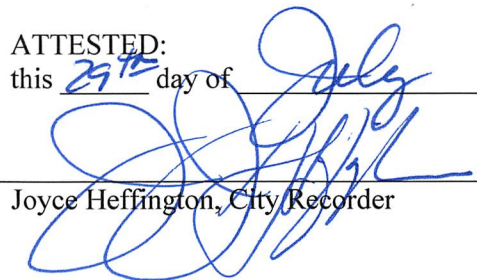 ATTESTED:
this 29th day of July
Joyce Heffington, City Recorder